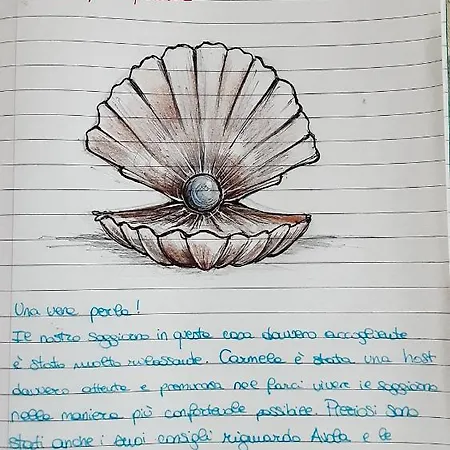 Una vera perla!
Il nostro soggiorno in questa casa davvero accogliente
è stato molto rilassante. Carmela è stata una host
davvero attenta e premurosa nel farci vivere il soggiorno
nella maniera più confortevole possibile. Preziosi sono
stati anche i suoi consigli riguardo Avola e le